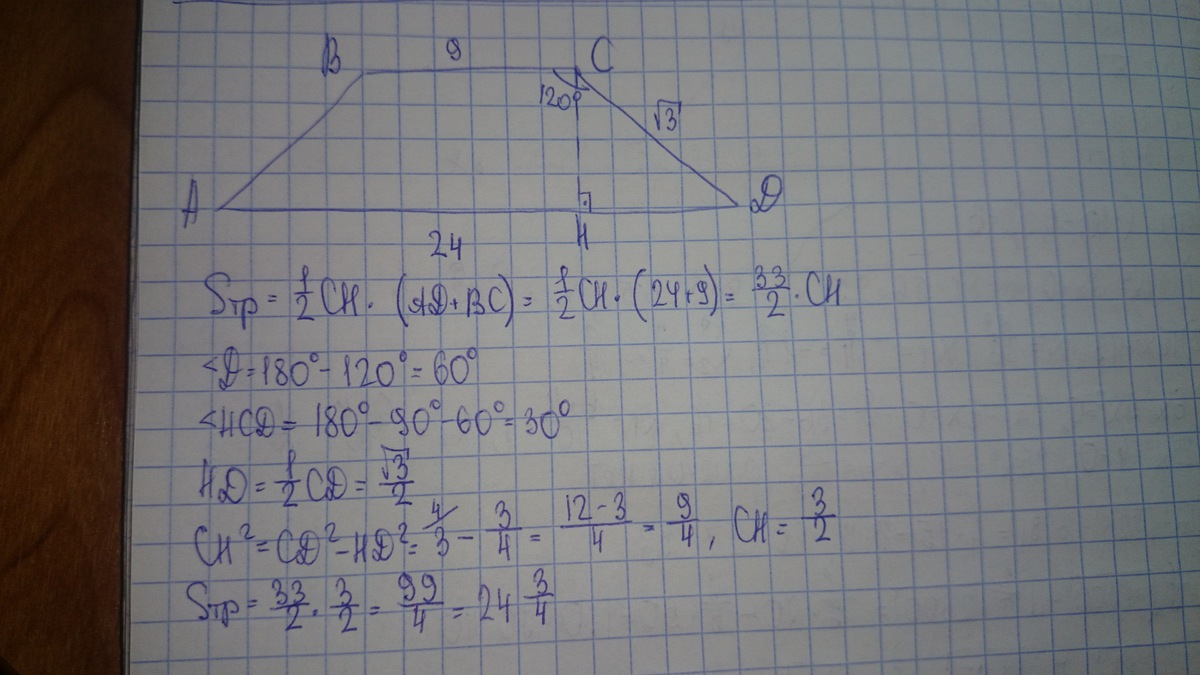 B 9 C
120° √3
A D
24 H
Sтр = 1/2 CH · (AD+BC) = 1/2 CH · (24+9) = 33/2 · CH
∠D = 180° - 120° = 60°
∠HCD = 180° - 90° - 60° = 30°
HD = 1/2 CD = √3/2
CH² = CD² - HD² = ⁴⁄3 - 3/4 = 12-3/4 = 9/4, CH = 3/2
Sтр = 33/2 · 3/2 = 99/4 = 24 3/4